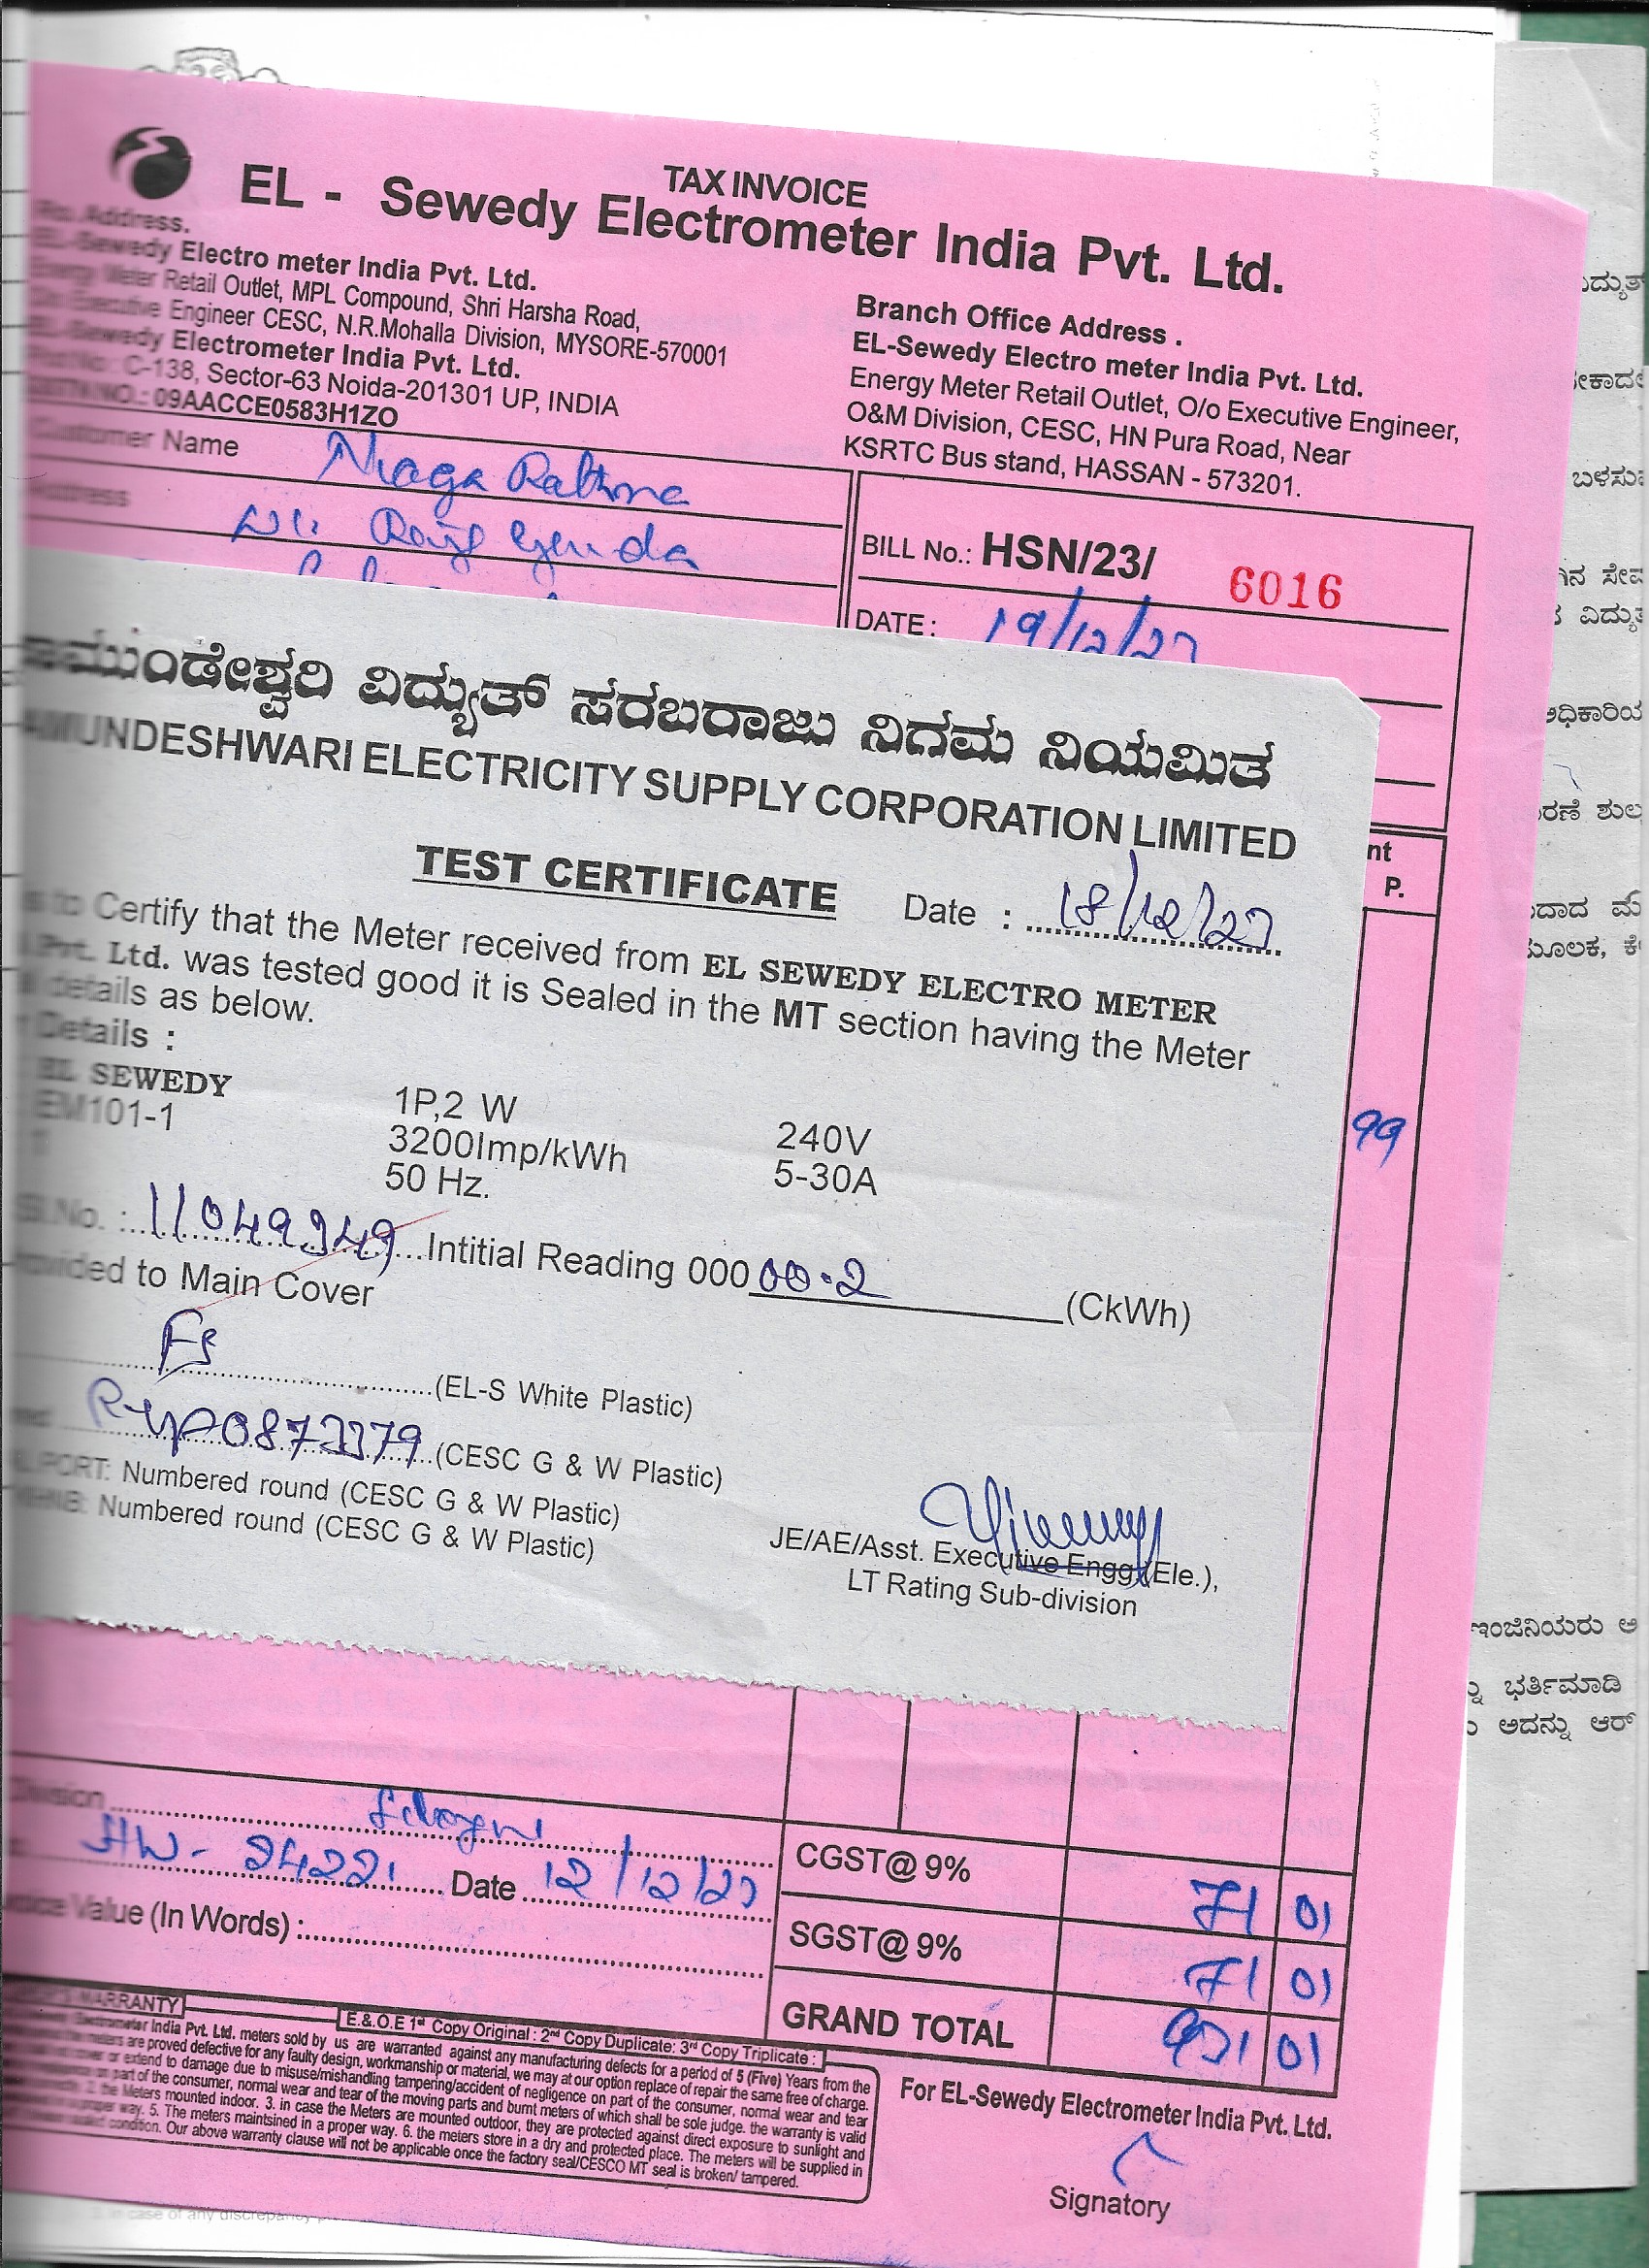 TAX INVOICE
EL - Sewedy Electrometer India Pvt. Ltd.
Address.
EL-Sewedy Electro meter India Pvt. Ltd.
Energy Meter Retail Outlet, MPL Compound, Shri Harsha Road,
Executive Engineer CESC, N.R.Mohalla Division, MYSORE-570001
EL-Sewedy Electrometer India Pvt. Ltd.
C-138, Sector-63 Noida-201301 UP, INDIA
NO.: 09AACCE0583H1ZO
Branch Office Address .
EL-Sewedy Electro meter India Pvt. Ltd.
Energy Meter Retail Outlet, O/o Executive Engineer,
O&M Division, CESC, HN Pura Road, Near
KSRTC Bus stand, HASSAN - 573201.
Customer Name Naga Rathna
Address
BILL No.: HSN/23/ 6016
DATE: 19/12/23
ಾಮುಂಡೇಶ್ವರಿ ವಿದ್ಯುತ್ ಸರಬರಾಜು ನಿಗಮ ನಿಯಮಿತ
AMUNDESHWARI ELECTRICITY SUPPLY CORPORATION LIMITED
TEST CERTIFICATE Date : 18/12/23
to Certify that the Meter received from EL SEWEDY ELECTRO METER
Pvt. Ltd. was tested good it is Sealed in the MT section having the Meter
details as below.
Details :
EL SEWEDY
EM101-1 1P,2 W
3200Imp/kWh 240V
50 Hz. 5-30A
Sl.No. : 11049349 Intitial Reading 000 00.2 (CkWh)
ovided to Main Cover
(EL-S White Plastic)
(CESC G & W Plastic)
PORT: Numbered round (CESC G & W Plastic)
Numbered round (CESC G & W Plastic)
JE/AE/Asst. Executive Engg.(Ele.),
LT Rating Sub-division
nt
P.
99
Division
HW- 24221 Date 12/12/23
Value (In Words) :
CGST@ 9% 71 01
SGST@ 9% 71 01
GRAND TOTAL 931 01
WARRANTY
E.& O.E 1st Copy Original : 2nd Copy Duplicate: 3rd Copy Triplicate :
Electrometer India Pvt. Ltd. meters sold by us are warranted against any manufacturing defects for a period of 5 (Five) Years from the
the meters are proved defective for any faulty design, workmanship or material, we may at our option replace of repair the same free of charge.
or extend to damage due to misuse/mishandling tampering/accident of negligence on part of the consumer, normal wear and tear
part of the consumer, normal wear and tear of the moving parts and burnt meters of which shall be sole judge. the warranty is valid
the Meters mounted indoor. 3. in case the Meters are mounted outdoor, they are protected against direct exposure to sunlight and
way. 5. The meters maintsined in a proper way. 6. the meters store in a dry and protected place. The meters will be supplied in
condition. Our above warranty clause will not be applicable once the factory seal/CESCO MT seal is broken/ tampered.
For EL-Sewedy Electrometer India Pvt. Ltd.
Signatory
in case of any discrepancy
ಬಳಸು
ಅಧಿಕಾರಿಯ
ರಣೆ ಶುಲ
ದಾದ ಮ
ಮೂಲಕ, ಕೆ
ಇಂಜಿನಿಯರು ಅ
ಭರ್ತಿಮಾಡಿ
ಅದನ್ನು ಆರ್